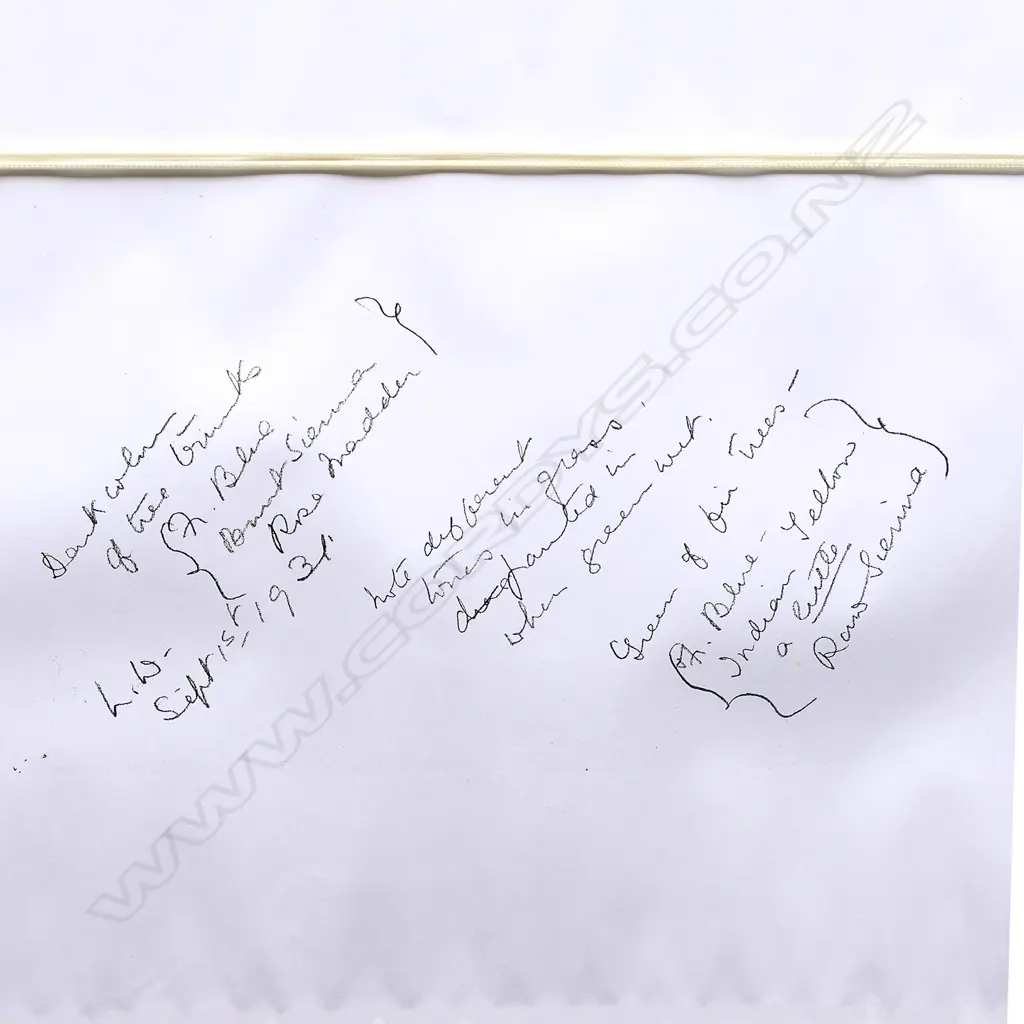 Dark colour
of tree trunks
Fr. Blue
Burnt Sienna
Rose Madder
L.W.
Sept 1st 1931.
note different
tones in grass,
in
when green wet.
Green of fir trees -
Fr. Blue - 
Indian Yellow
a little
Raw Sienna
WWW.CORDYS.CO.NZ